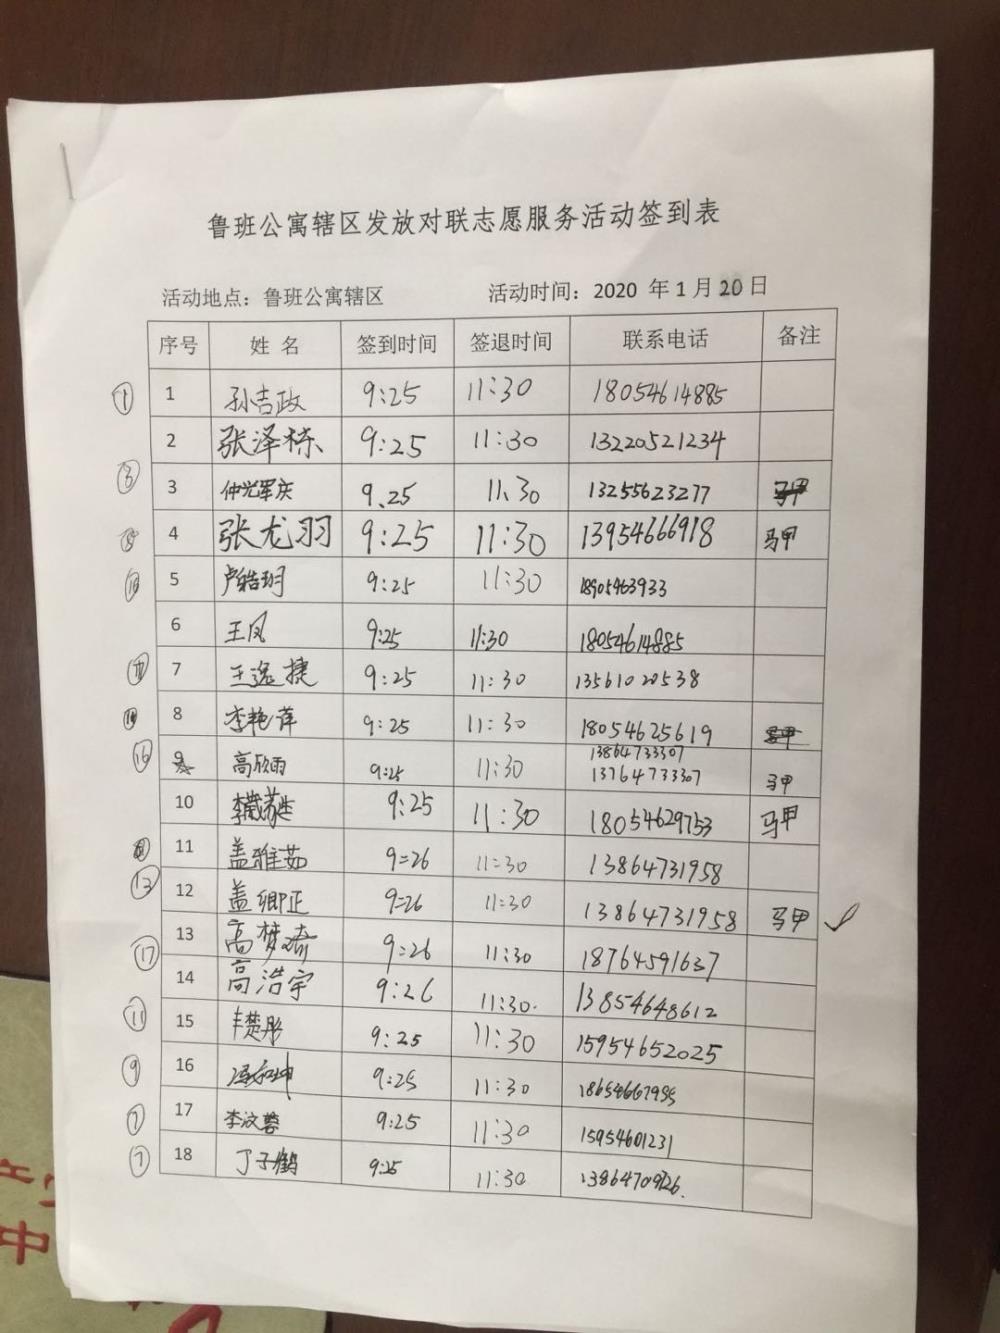 鲁班公寓辖区发放对联志愿服务活动签到表
活动地点：鲁班公寓辖区 活动时间：2020 年 1 月 20 日
序号 姓 名 签到时间 签退时间 联系电话 备注
① 1 孙吉政 9:25 11:30 18054614885
2 张泽栋 9:25 11:30 13220521234
3 仲光军庆 9.25 11.30 13255623277
4 张龙羽 9:25 11:30 13954666918 马甲
5 卢皓玥 9:25 11:30 18905463933
6 王凤 9:25 11:30 18054614885
7 王逸捷 9:25 11:30 13561020538
8 李艳萍 9:25 11:30 18054625619
13864733307
⑯ 9 高欣雨 9:25 11:30 13764733307 马甲
10 9:25 11:30 18054629753 马甲
11 盖雅茹 9=26 11=30 13864731958
⑬ 12 盖卿正 9=26 11=30 13864731958 马甲 ✓
13 高梦 9:26 11:30 18764591637
⑰ 14 高浩宇 9:26 11:30. 13854648612
⑪ 15 丰楚彤 9:25 11:30 15954652025
⑨ 16 9:25 11:30
⑦ 17 李汶蓉 9:25 11:30 15954601231
⑦ 18 丁子鹤 9:25 11:30
中